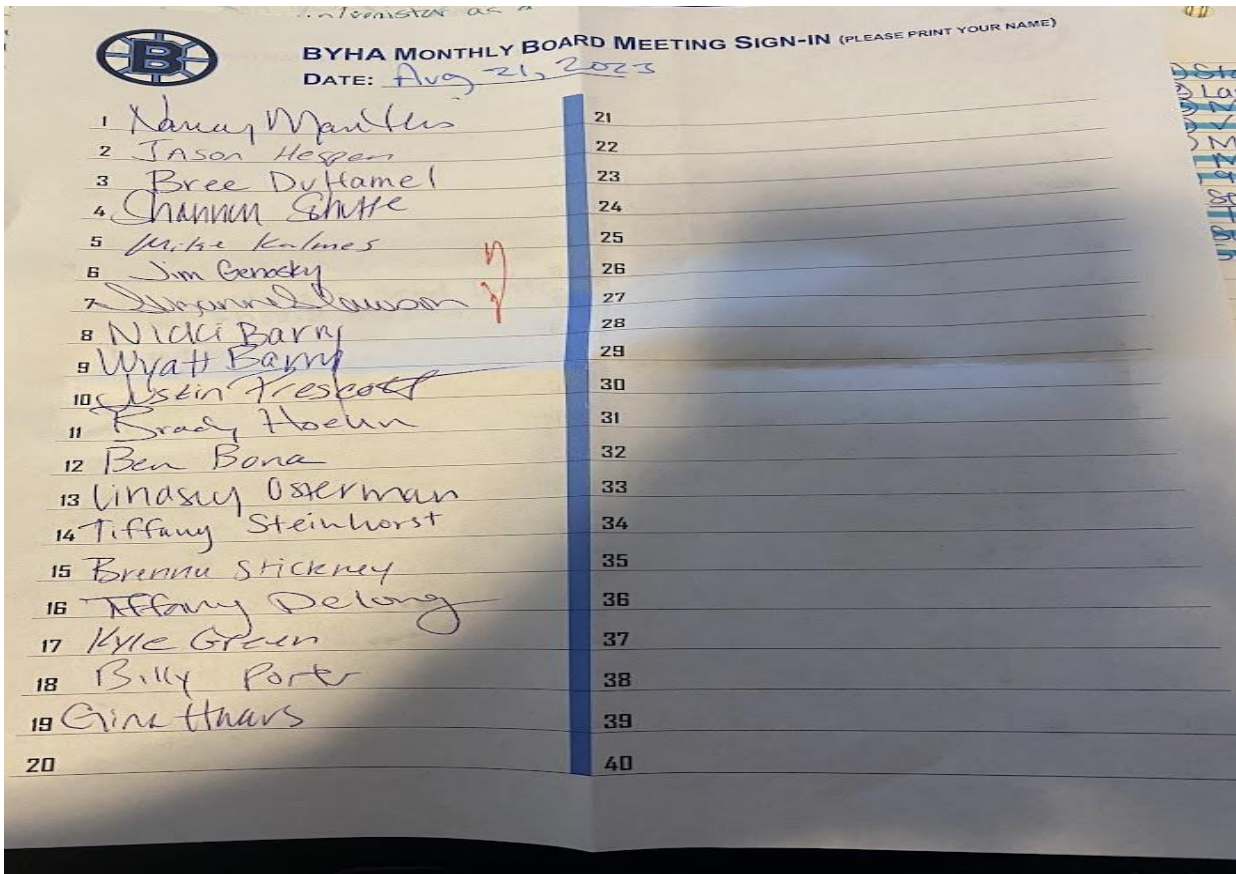 as a
B
BYHA MONTHLY BOARD MEETING SIGN-IN (PLEASE PRINT YOUR NAME)
DATE: Aug 21, 2023
1 Nancy
2 Jason Hespen
3 Bree DuHamel
4 Shannon
5 Mike Kalmes
6 Jim Genosky
7 Suzanne Lawson
8 Nicki Barry
9 Wyatt Barry
10 Justin Trescott
11 Brady Hoehn
12 Ben Bona
13 Lindsey Osterman
14 Tiffany Steinhorst
15 Brenna Stickney
16 Tiffany Delong
17 Kyle Green
18 Billy Porter
19 Gina Haars
20
21
22
23
24
25
26
27
28
29
30
31
32
33
34
35
36
37
38
39
40